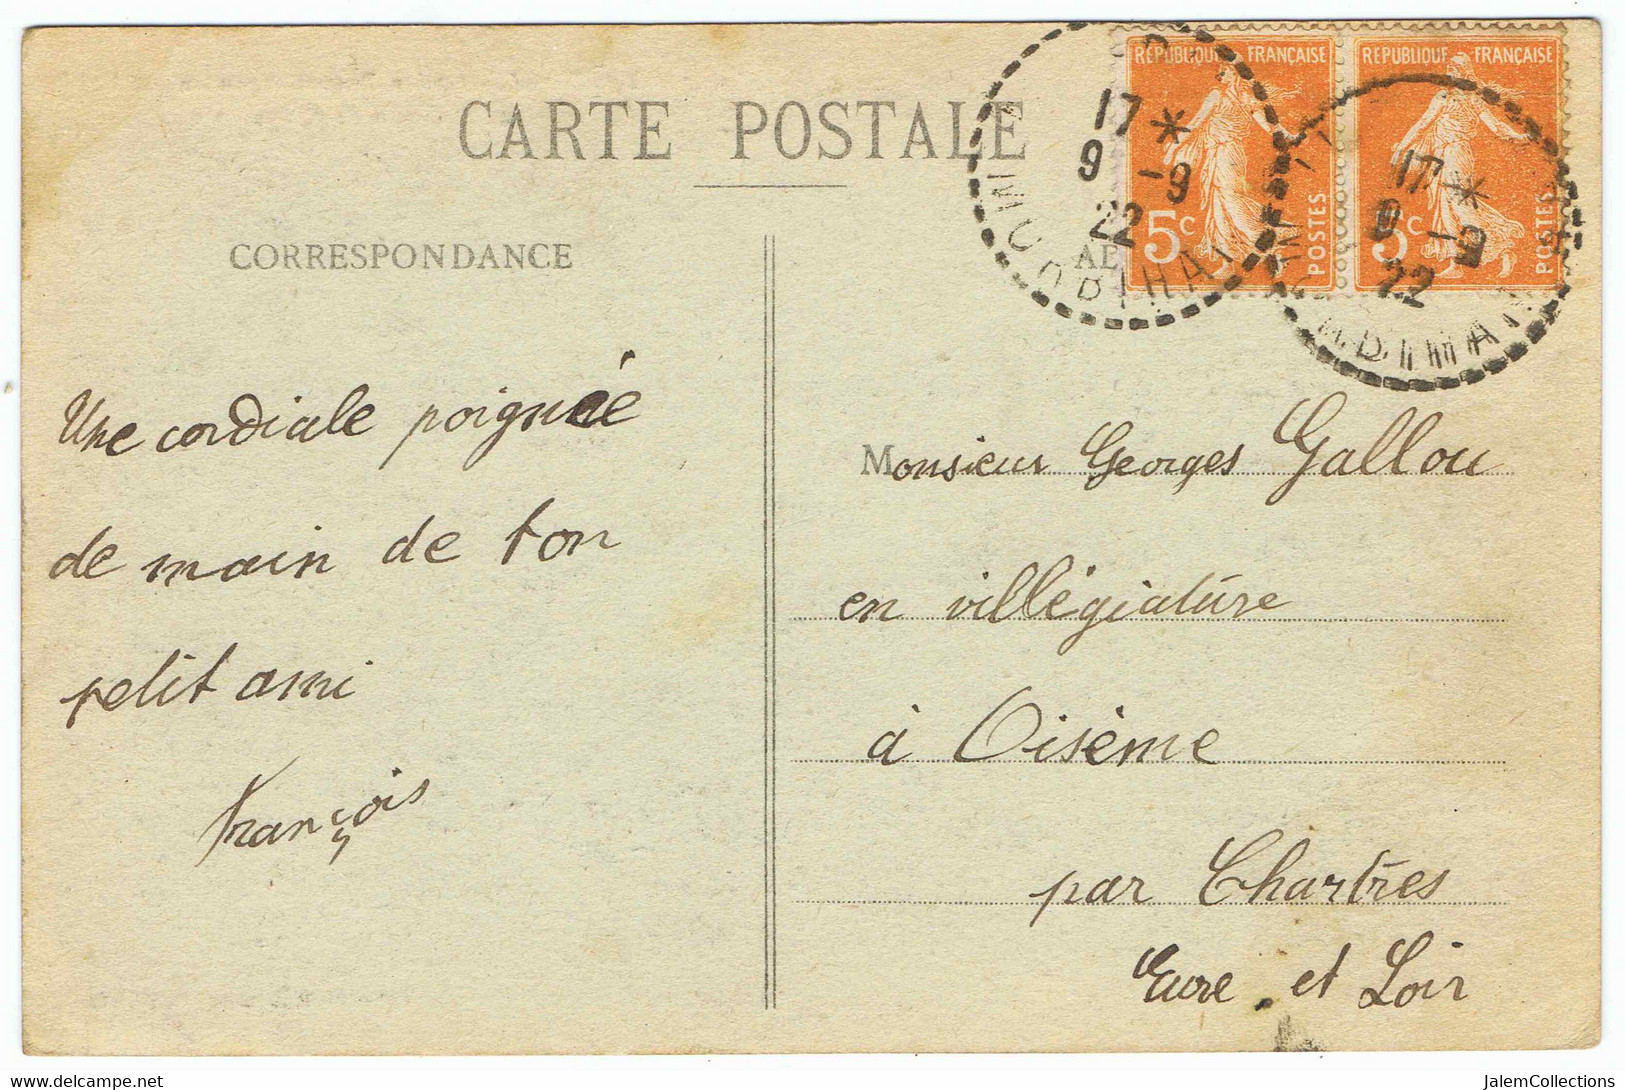 CARTE POSTALE
CORRESPONDANCE
RÉPUBLIQUE FRANÇAISE
5c
POSTES
RÉPUBLIQUE FRANÇAISE
5c
POSTES
17 *
9 -9
22
MORBIHAN
17 *
9 -9
22
Une cordiale poignée
de main de ton
petit ami
François
Monsieur Georges Gallou
en villégiature
à Oisème
par Chartres
Eure et Loir
JalemCollections